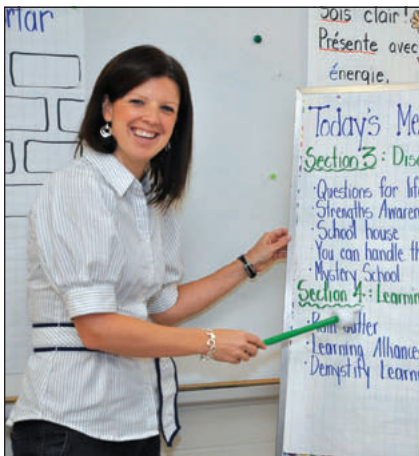 rtar
Sois clair!
Présente avec
énergie.
Today's Me
Section 3: Disc
· Questions for life
· Strengths Awaren
· School house
· You can handle th
· Mystery School
Section 4: Learning
· utler
· Learning Alliances
· Demystify Learni